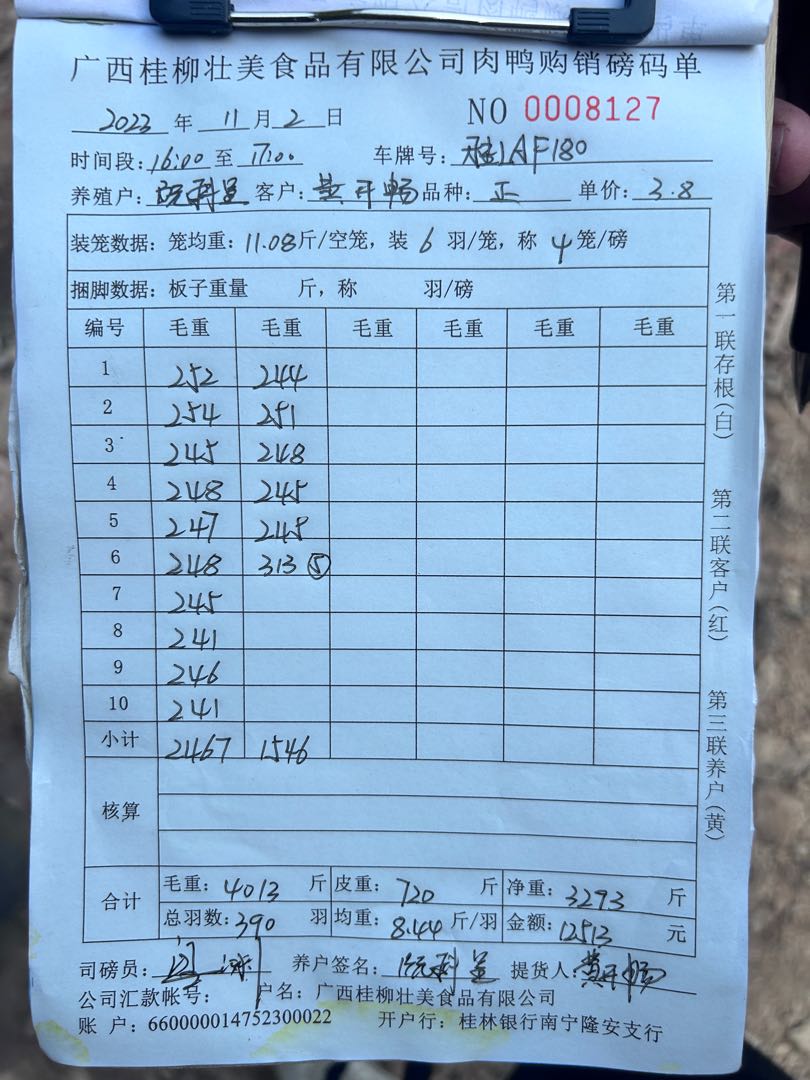 广西桂柳壮美食品有限公司肉鸭购销磅码单
2023 年 11 月 2 日 NO 0008127
时间段: 16:00 至 17:00 车牌号: 桂AF180
养殖户: 客户: 黄开畅 品种: 正 单价: 3.8
装笼数据: 笼均重: 11.08斤/空笼, 装 6 羽/笼, 称 4 笼/磅
捆脚数据: 板子重量 斤, 称 羽/磅
编号 毛重 毛重 毛重 毛重 毛重 毛重
1 252 244
2 254 251
3 245 248
4 248 245
5 247 245
6 248 313 ⑤
7 245
8 241
9 246
10 241
小计 2467 1546
核算
合计
毛重: 4013 斤 皮重: 720 斤 净重: 3293 斤
总羽数: 390 羽 均重: 8.44 斤/羽 金额: 12513 元
司磅员: 养户签名: 提货人: 黄开畅
公司汇款帐号: 户名: 广西桂柳壮美食品有限公司
账 户: 660000014752300022 开户行: 桂林银行南宁隆安支行
第一联存根(白)
第二联客户(红)
第三联养户(黄)